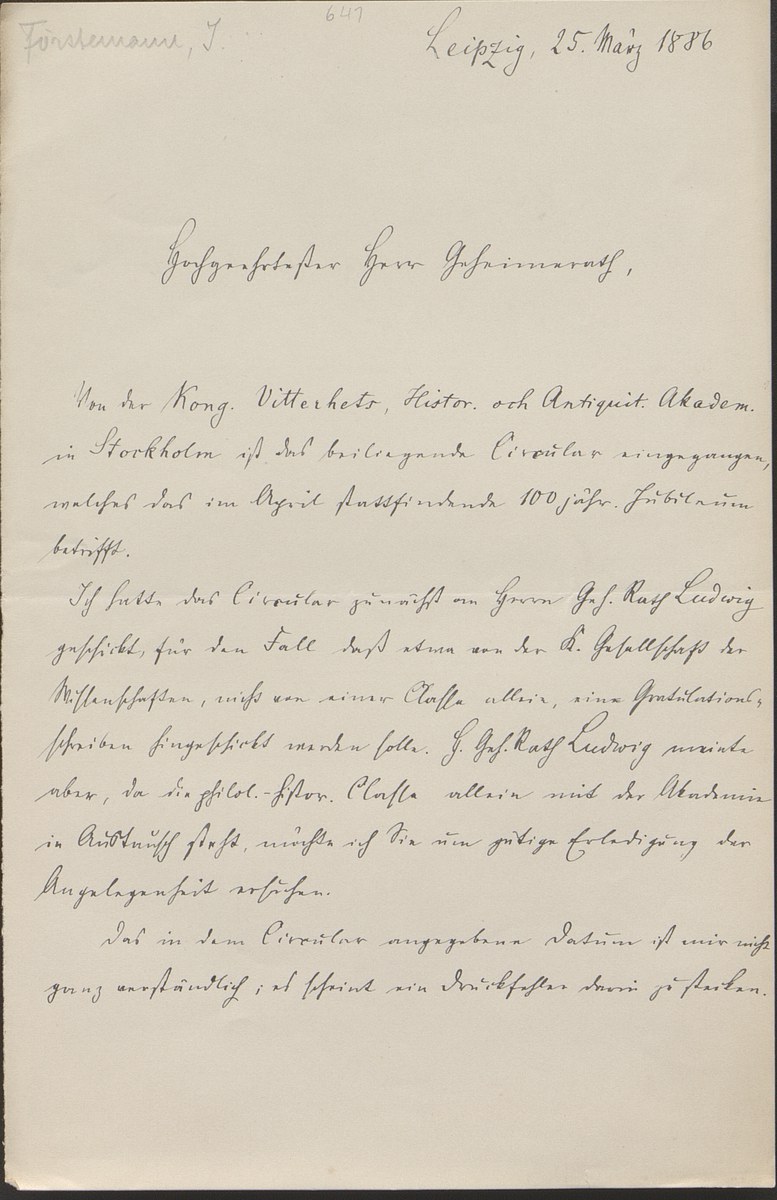 Förstemann, J.
641
Leipzig, 25. März 1886
Hochgeehrtester Herr Geheimerath,
Von der Kong. Vitterhets, Histor. och Antiquit. Akadem.
in Stockholm ist das beiliegende Circular eingegangen,
welches das im April stattfindende 100 jähr. Jubiläum
betrifft.
Ich hatte das Circular zunächst an Herrn Geh. Rath Ludwig
geschickt, für den Fall daß etwa von der K. Gesellschaft der
Wissenschaften, nicht von einer Classe allein, eine Gratulations-
schreiben hingeschickt werden solle. H. Geh. Rath Ludwig meinte
aber, da die philol.-histor. Classe allein mit der Akademie
in Austausch steht, möchte ich Sie um gütige Erledigung der
Angelegenheit ersuchen.
Das in dem Circular angegebene Datum ist mir nicht
ganz verständlich; es scheint ein Druckfehler darin zu stecken.